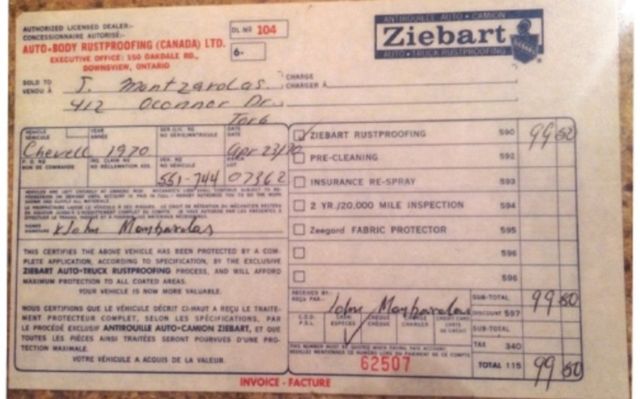 AUTHORIZED LICENSED DEALER:-
CONCESSIONNAIRE AUTORISÉ:-
AUTO-BODY RUSTPROOFING (CANADA) LTD.
EXECUTIVE OFFICE: 550 OAKDALE RD.,
DOWNSVIEW, ONTARIO
DL NO 104
6-
ANTIROUILLE AUTO-CAMION
Ziebart
AUTO-TRUCK RUSTPROOFING
SOLD TO
VENDU À
J. Montzarolas
CHARGE
CHARGER À
412 Oconnor Dr.
Toro
VEHICLE
VÉHICULE
YEAR
ANNÉE
DATE
Chevell 1970
Apr 23/70
551-744 07362
SIGNED
x John
THIS CERTIFIES THE ABOVE VEHICLE HAS BEEN PROTECTED BY A COM-
PLETE APPLICATION, ACCORDING TO SPECIFICATION, BY THE EXCLUSIVE
ZIEBART AUTO-TRUCK RUSTPROOFING PROCESS, AND WILL AFFORD
MAXIMUM PROTECTION TO ALL COATED AREAS.
YOUR VEHICLE IS NOW MORE VALUABLE.
NOUS CERTIFIONS QUE LE VÉHICULE DÉCRIT CI-HAUT A REÇU LE TRAITE-
MENT PROTECTEUR COMPLET, SELON LES SPÉCIFICATIONS, PAR
LE PROCÉDÉ EXCLUSIF ANTIROUILLE AUTO-CAMION ZIEBART, ET QUE
TOUTES LES PIÈCES AINSI TRAITÉES SERONT POURVUES D'UNE PRO-
TECTION MAXIMALE.
VOTRE VÉHICULE A ACQUIS DE LA VALEUR.
ZIEBART RUSTPROOFING 590 99 50
PRE-CLEANING 592
INSURANCE RE-SPRAY 593
2 YR./20,000 MILE INSPECTION 594
Zeegard FABRIC PROTECTOR 595
596
596
RECEIVED BY
REÇU PAR
John
SUB-TOTAL 99 50
C.O.D.
CASH
ESPÈCES
CHEQUE
CHÈQUE
CHARGE
CHARGER
CREDIT CARD
CARTE DE CRÉDIT
DISCOUNT 597
SUB-TOTAL
TAX 340
62507
TOTAL 115 99 50
INVOICE - FACTURE